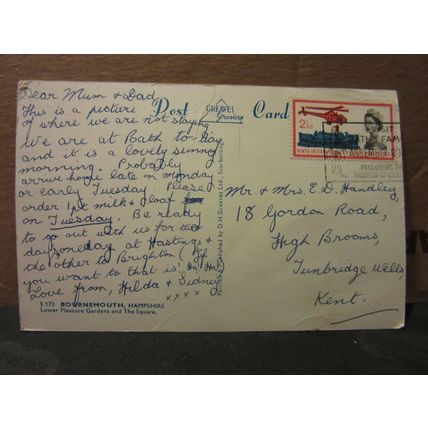 Dear Mum & Dad
This is a picture
of where we are not staying
We are at Bath to-day
and it is a lovely sunny
morning. Probably
arrive home late on Monday
or early Tuesday. Please
order 1pt milk & 1 loaf
on Tuesday. Be ready
to go out with us for the
day, one day at Hastings &
the other to Brighton (If
you want to that is! Ha, Ha)
Love from, Hilda & Sidney
xxxx
S 173 BOURNEMOUTH, HAMPSHIRE
Lower Pleasure Gardens and The Square.
Post Card
GREAVES
Printed & Published by D.H. Greaves Ltd., Scarborough
2½D
NINTH INTER
VISIT
FAM
ASSEMBLY
INCLUDING THE
MUSEUM OF COS
Mr. & Mrs. E.D. Handley,
18 Gordon Road,
High Brooms,
Tunbridge Wells,
Kent.